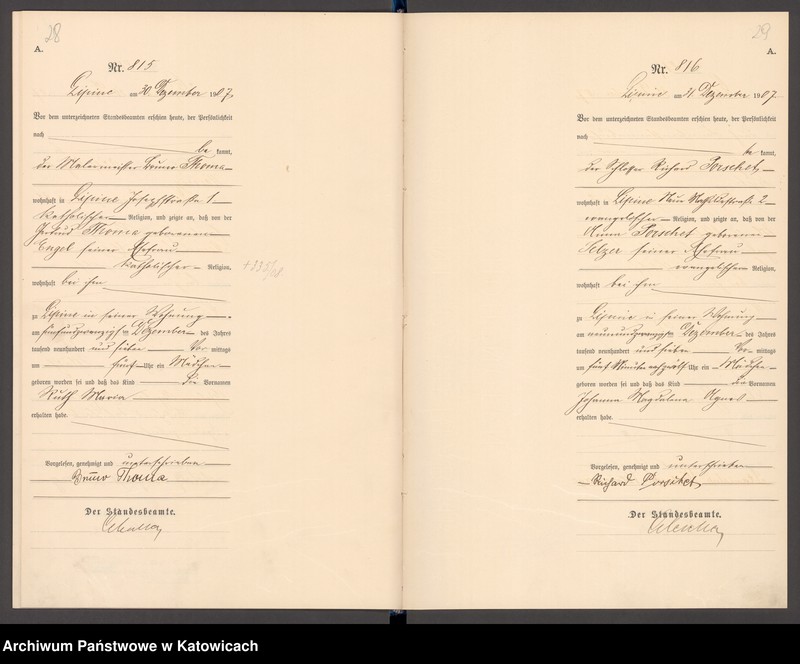 28
A.
Nr. 815
Lipine am 30. Dezember 1907.
Vor dem unterzeichneten Standesbeamten erschien heute, der Persönlichkeit
nach
be kannt,
der Malermeister Bruno Thoma
wohnhaft in Lipine Josephstraße 1
katholischer Religion, und zeigte an, daß von der
Thoma geborenen
Engel seiner Ehefrau
katholischer Religion,
wohnhaft bei ihm
zu Lipine in seiner Wohnung
am fünfundzwanzigsten Dezember des Jahres
tausend neunhundert und sieben Vor mittags
um fünf Uhr ein Mädchen
geboren worden sei und daß das Kind die Vornamen
Ruth Maria
erhalten habe.
Vorgelesen, genehmigt und unterschrieben
Bruno Thoma
Der Standesbeamte.
29
A.
Nr. 816
Lipine am 31. Dezember 1907.
Vor dem unterzeichneten Standesbeamten erschien heute, der Persönlichkeit
nach
be kannt,
der Schlosser Richard
wohnhaft in Lipine 2
evangelischer Religion, und zeigte an, daß von der
Anna geborenen
Selzer seiner Ehefrau
evangelischen Religion,
wohnhaft bei ihm
zu Lipine in seiner Wohnung
am neunundzwanzigsten Dezember des Jahres
tausend neunhundert und sieben Vor mittags
um fünf Minuten nach zwölf Uhr ein Mädchen
geboren worden sei und daß das Kind die Vornamen
Johanna Magdalena Agnes
erhalten habe.
Vorgelesen, genehmigt und unterschrieben
Richard
Der Standesbeamte.
Archiwum Państwowe w Katowicach